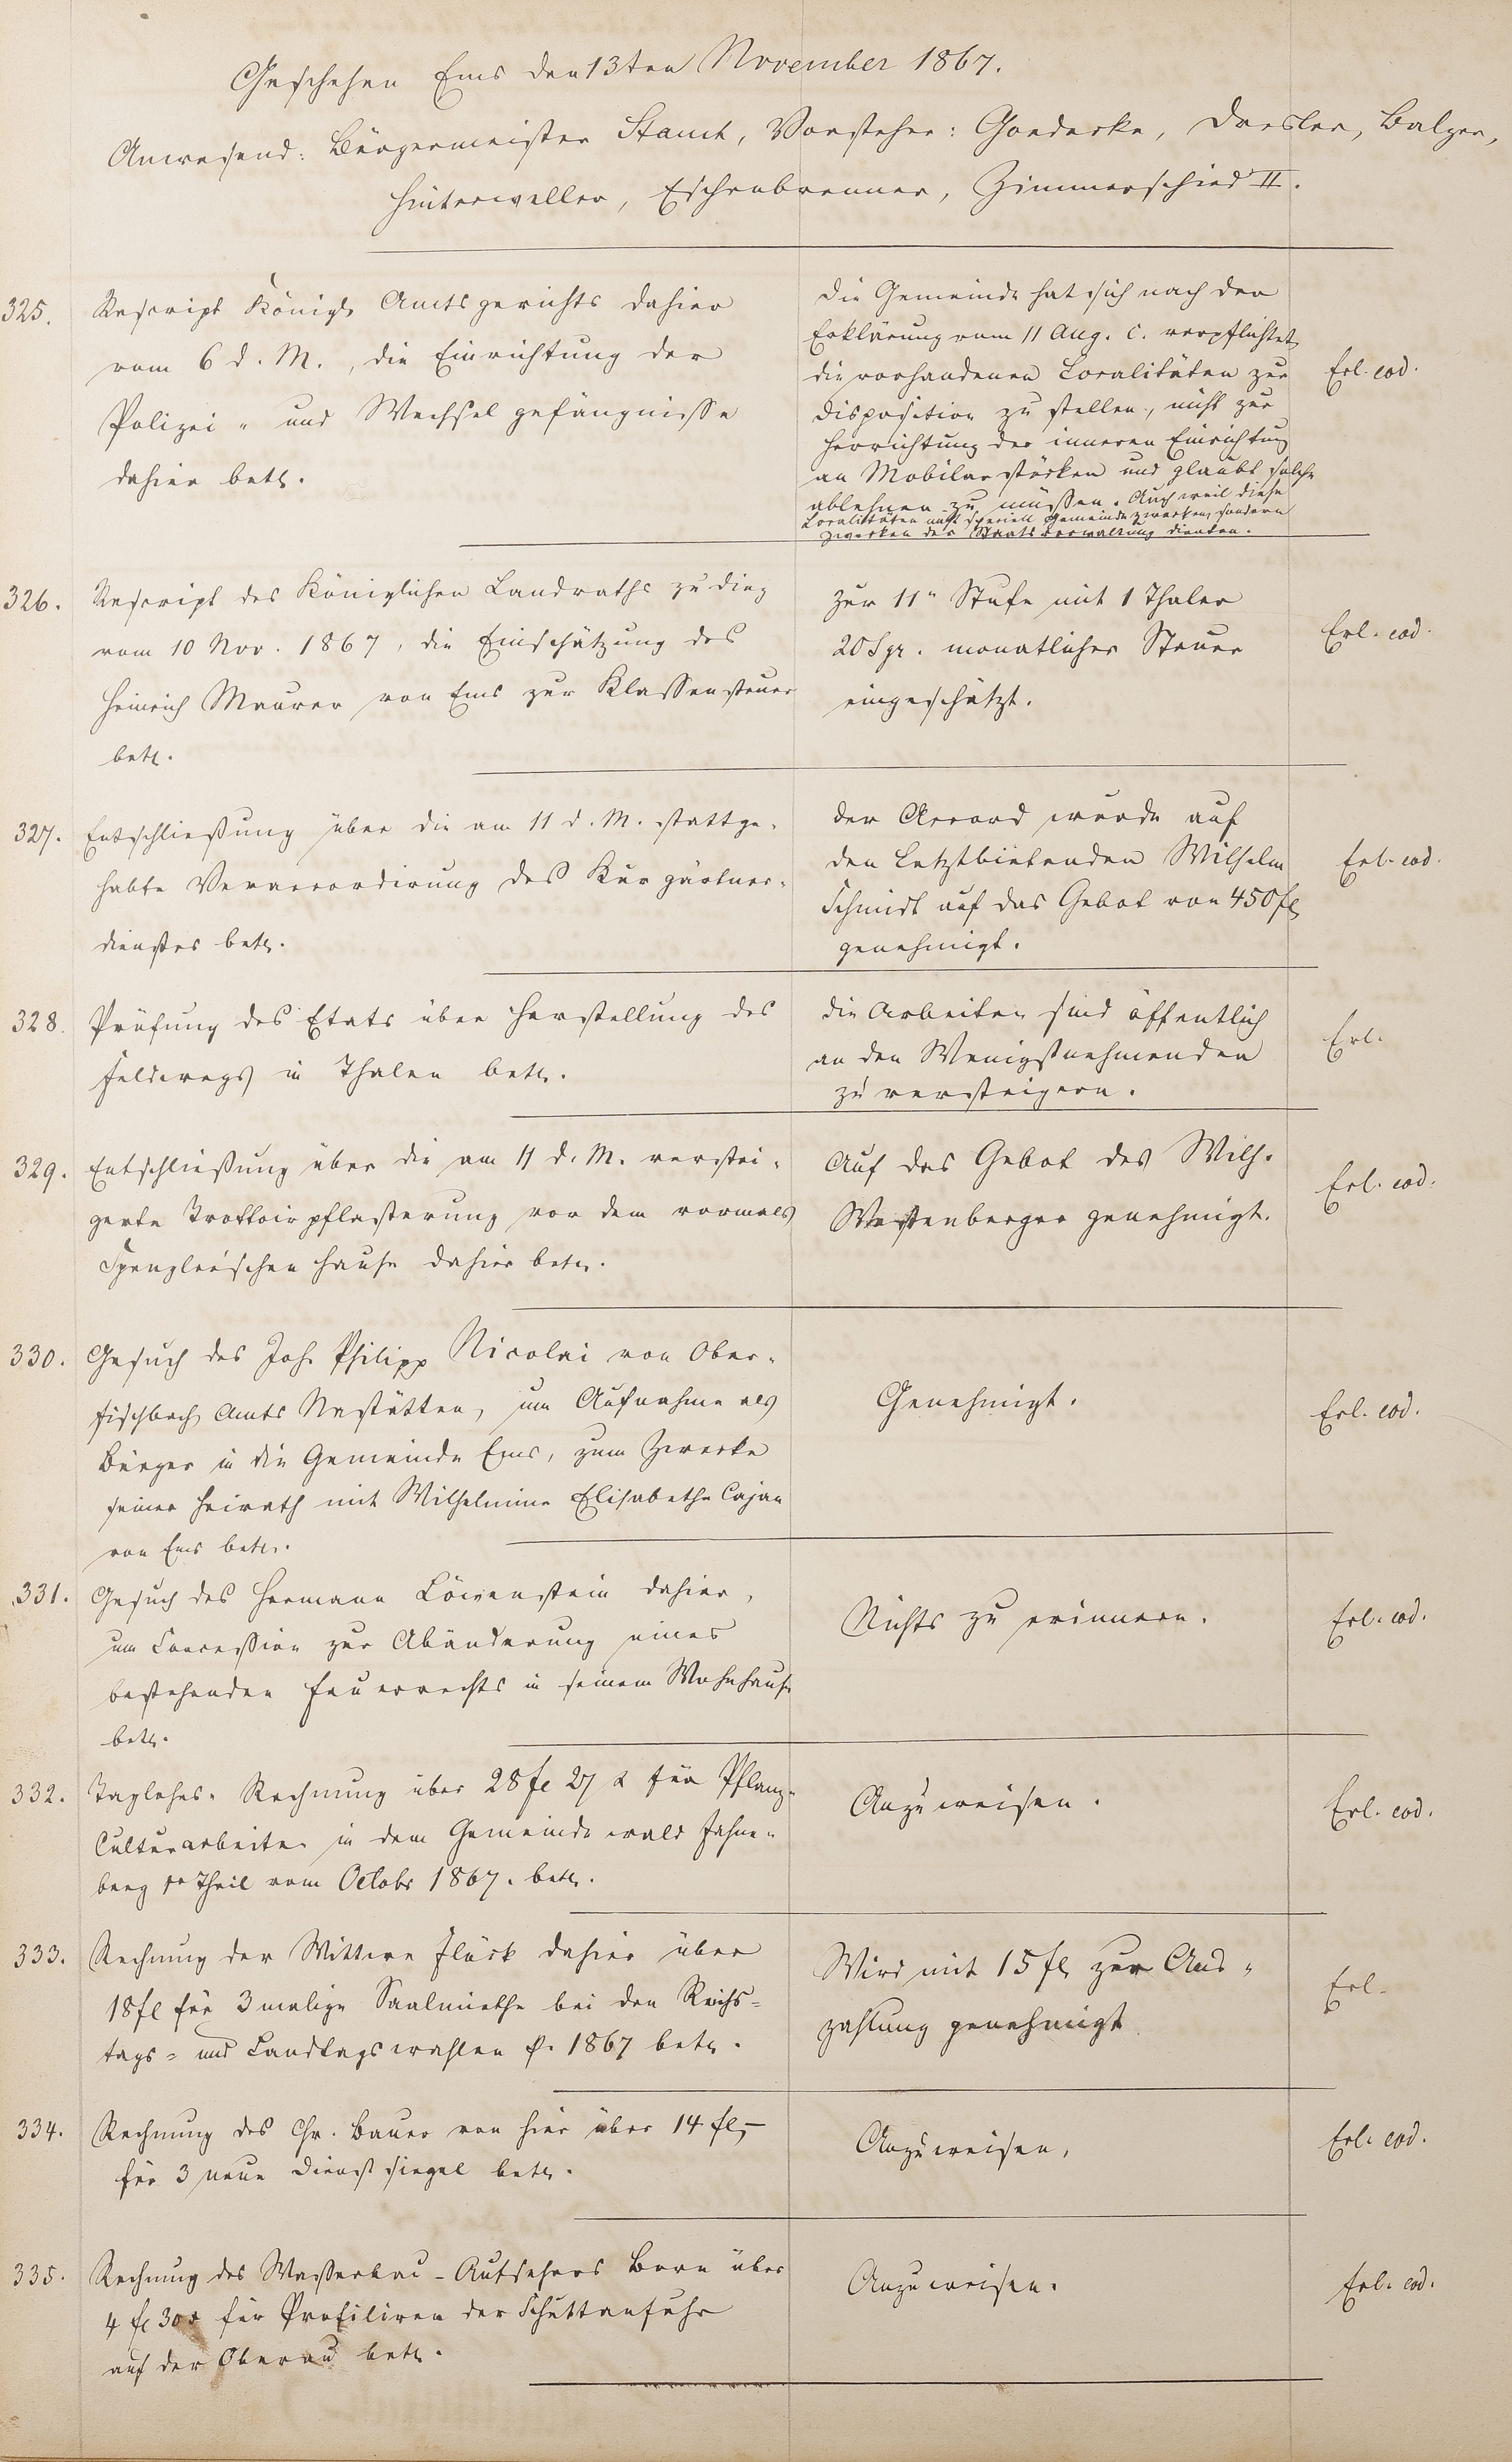 Geschehen Ems den 13ten November 1867.
Anwesend: Bürgermeister Stamt, Vorsteher: Goedecke, Dresler, Balzer,
Hinterweller, Eschenbrenner, Zimmerschied II.
325.
Rescript Königl. Amtsgerichts dahier
vom 6 d. M., die Einrichtung der
Polizei- und Wechsel gefängnisse
dahier betr.
Die Gemeinde hat sich nach der
Erklärung vom 11 Aug. c. verpflichtet
die vorhandenen Localitäten zur
Disposition zu stellen, nicht zur
Herrichtung der inneren Einrichtung
an Mobilarstücken und glaubt solche
ablehnen zu müssen. Auch weil diese
Localitäten nicht speciell Gemeindezwecken, sondern
Zwecken der Staatsverwaltung dienten.
Erl. eod.
326.
Rescript des Königlichen Landraths zu Diez
vom 10 Nov. 1867, die Einschätzung des
Heinrich Maurer von Ems zur Klassensteuer
betr.
Zur 11" Stufe mit 1 Thaler
20 Sgr. monatlicher Steuer
eingeschätzt.
Erl. eod.
327.
Entschließung über die am 11 d. M. stattge-
habte Veraccordirung des Kurgärtner-
dienstes betr.
Der Accord wurde auf
den Letztbietenden Wilhelm
Schmidt auf das Gebot von 450 fl
genehmigt.
Erl. eod.
328.
Prüfung des Etats über Herstellung des
Feldwegs in Thalen betr.
Die Arbeiten sind öffentlich
an den Wenigstnehmenden
zu versteigern.
Erl.
329.
Entschließung über die am 11 d. M. verstei-
gerte Trottoirpflasterung vor dem vormals
Spengler'schen Hause dahier betr.
Auf das Gebot des Wilh.
Westenberger genehmigt.
Erl. eod.
330.
Gesuch des Joh. Philipp Nicolai von Ober-
fischbach Amts Nastätten, um Aufnahme als
Bürger in die Gemeinde Ems, zum Zwecke
seiner Heirath mit Wilhelmine Elisabethe Cajan
von Ems betr.
Genehmigt.
Erl. eod.
331.
Gesuch des Hermann Löwenstein dahier,
um Concession zur Abänderung eines
bestehenden Feuerrechts in seinem Wohnhause
betr.
Nichts zu erinnern.
Erl. eod.
332.
Taglohns- Rechnung über 28 fl 27 x für Pflanz-
Culturarbeiten in dem Gemeindewald Fahne-
berg 1r Theil vom Octobr 1867. betr.
Anzuweisen.
Erl. eod.
333.
Rechnung der Wittwe Flöck dahier über
18 fl für 3 malige Saalmiethe bei den Reichs-
tags- und Landtagswahlen p. 1867 betr.
Wird mit 15 fl zur Aus-
zahlung genehmigt
Erl.
334.
Rechnung des Chr. Bauer von hier über 14 fl,–
für 3 neue Dienstsiegel betr.
Anzuweisen,
Erl. eod.
335.
Rechnung des Wasserbau-Aufsehers Born über
4 fl 30 x für Profiliren der Schuttanfuhr
auf der Oberau betr.
Anzuweisen.
Erl. eod.